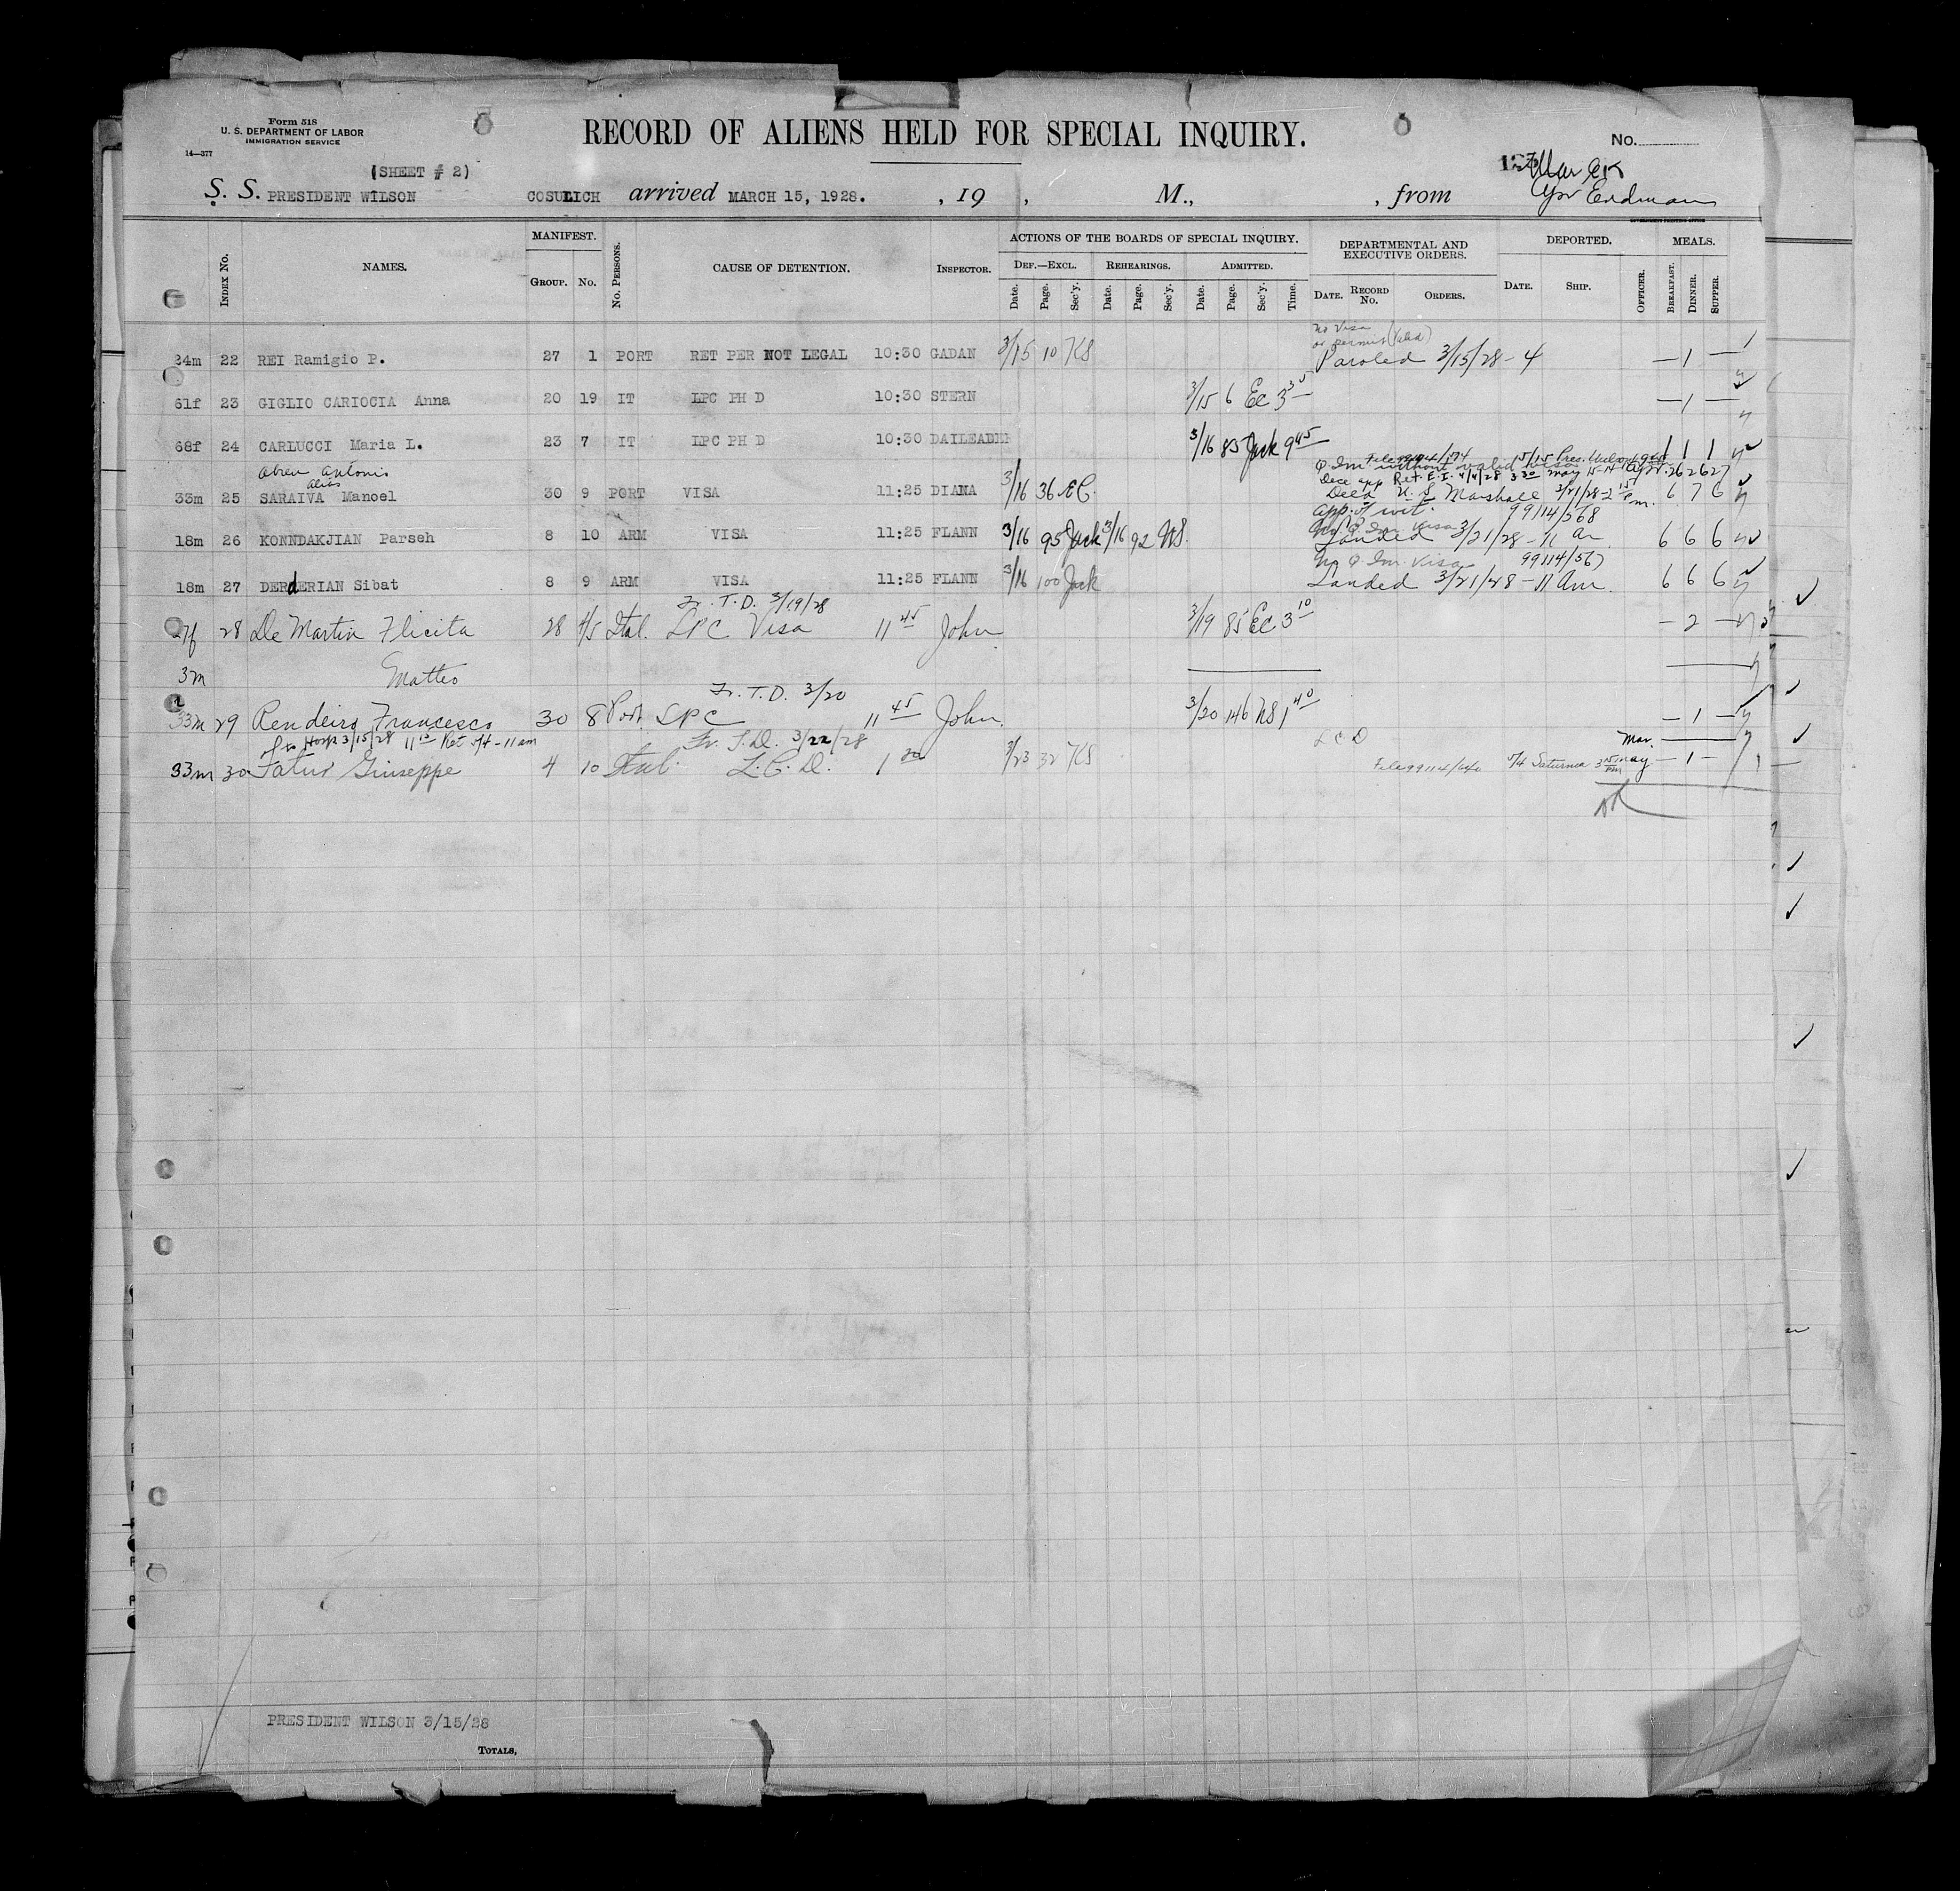 Form 518
U. S. DEPARTMENT OF LABOR
IMMIGRATION SERVICE
14—377
RECORD OF ALIENS HELD FOR SPECIAL INQUIRY.
No.
(SHEET # 2)
S. S. PRESIDENT WILSON COSULICH arrived MARCH 15, 1928. , 19 , M., , from
Erdman
INDEX No. NAMES. MANIFEST. GROUP. No. No. PERSONS. CAUSE OF DETENTION. INSPECTOR.
ACTIONS OF THE BOARDS OF SPECIAL INQUIRY.
DEF.—EXCL. Date. Page. Sec'y. REHEARINGS. Date. Page. Sec'y. ADMITTED. Date. Page. Sec'y. Time.
DEPARTMENTAL AND EXECUTIVE ORDERS. DATE. RECORD No. ORDERS.
DEPORTED. DATE. SHIP. OFFICER.
MEALS. BREAKFAST. DINNER. SUPPER.
No Visa
or permit (Valid)
24m 22 REI Ramigio P. 27 1 PORT RET PER NOT LEGAL 10:30 GADAN 3/15 10 KS Paroled 3/15/28 - 4 — 1 —
61f 23 GIGLIO CARIOCIA Anna 20 19 IT LPC PH D 10:30 STERN 3/15 6 EC 3 30 — 1 —
68f 24 CARLUCCI Maria L. 23 7 IT LPC PH D 10:30 DAILEADER 3/16 85 Jack 9 45 1 1 1
Abreu Antonio
alias
5/15 Pres. Wilson
Q Im without valid visa
Ret. E.I. 4/4/28 3 30 May 15-14 Apr. 26 26 27
33m 25 SARAIVA Manoel 30 9 PORT VISA 11:25 DIANA 3/16 36 EC. U. S. Marshall 3/21/28 - 2 15 Pm. 6 7 6
app. of wit. 99114/568
Q Im. Visa
18m 26 KONNDAKJIAN Parseh 8 10 ARM VISA 11:25 FLANN 3/16 95 Jack 3/16 92 NS. Landed 3/21/28 - 11 Am. 6 6 6
No Q Im. Visa 99114/567
18m 27 DERdERIAN Sibat 8 9 ARM VISA 11:25 FLANN 3/16 100 Jack Landed 3/21/28 - 11 Am. 6 6 6
Fr. T.D. 3/19/28
27f 28 De Martin Flicita 28 4/5 Ital. LPC Visa 11 45 John 3/19 85 EC 3 10 — 2 —
3m Matteo
Fr. T.D. 3/20
33m 29 Rendeiro Francesco 30 8 Port. LPC 11 45 John. 3/20 146 NS 1 40 — 1 —
to Hosp 3/15/28 11 15 Ret 5/4 - 11 am
Fr. T.D. 3/22/28
L C D Mar.
33m 30 Fatur Giuseppe 4 10 Ital. L.C.D. 1 20 3/23 32 KS File 99114/640 5/4 Saturnia 3 15 PM May — 1 —
PRESIDENT WILSON 3/15/28
TOTALS,